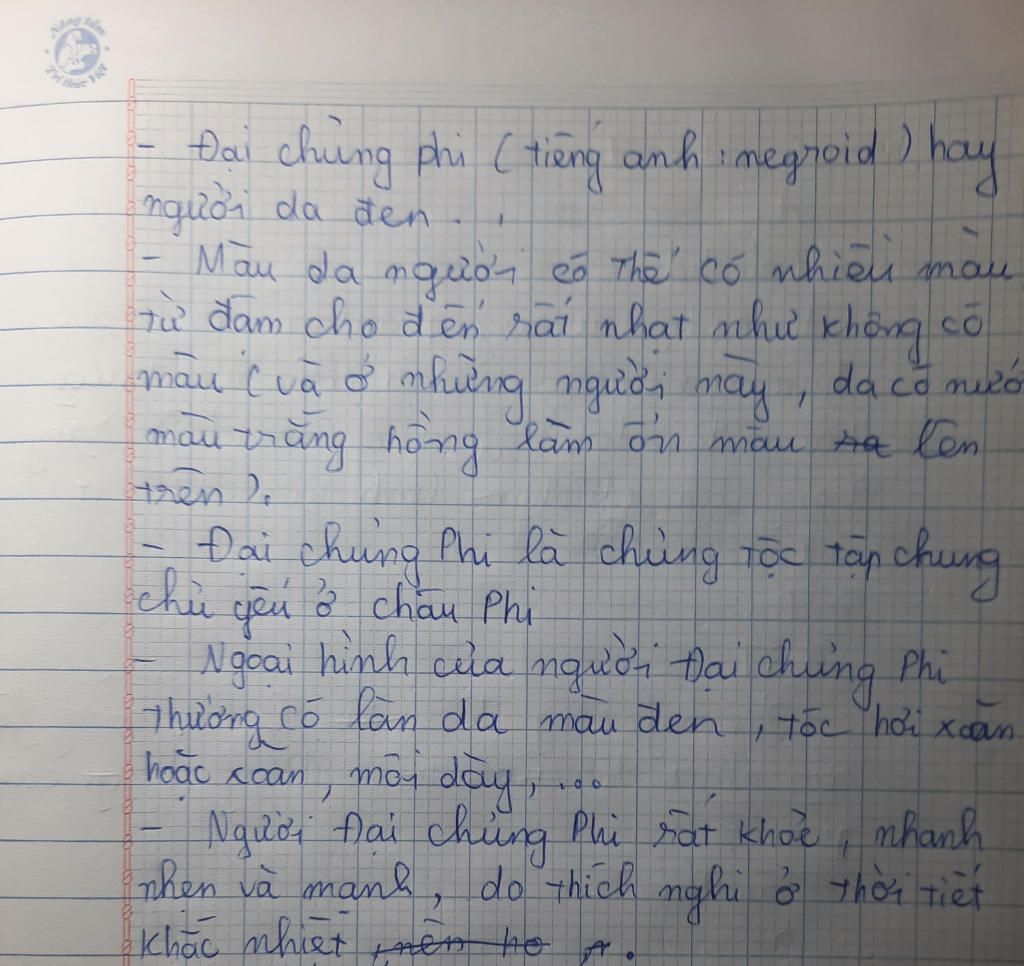 Nâng tầm
Tri thức Việt
- Đại chủng phi (tiếng anh : negroid) hay
người da đen.
- Màu da người có thể có nhiều màu
từ đậm cho đến rất nhạt như không có
màu (và ở những người này, da có nướ
màu trắng hồng làm ổn màu lên
trên).
- Đại chủng Phi là chủng tộc tập chung
chủ yếu ở châu Phi
- Ngoại hình của người Đại chủng Phi
thường có làn da màu đen, tóc hơi xoăn
hoặc xoăn, môi dày,...
- Người Đại chủng Phi rất khoẻ, nhanh
nhẹn và mạnh, do thích nghi ở thời tiết
khắc nhiệt.